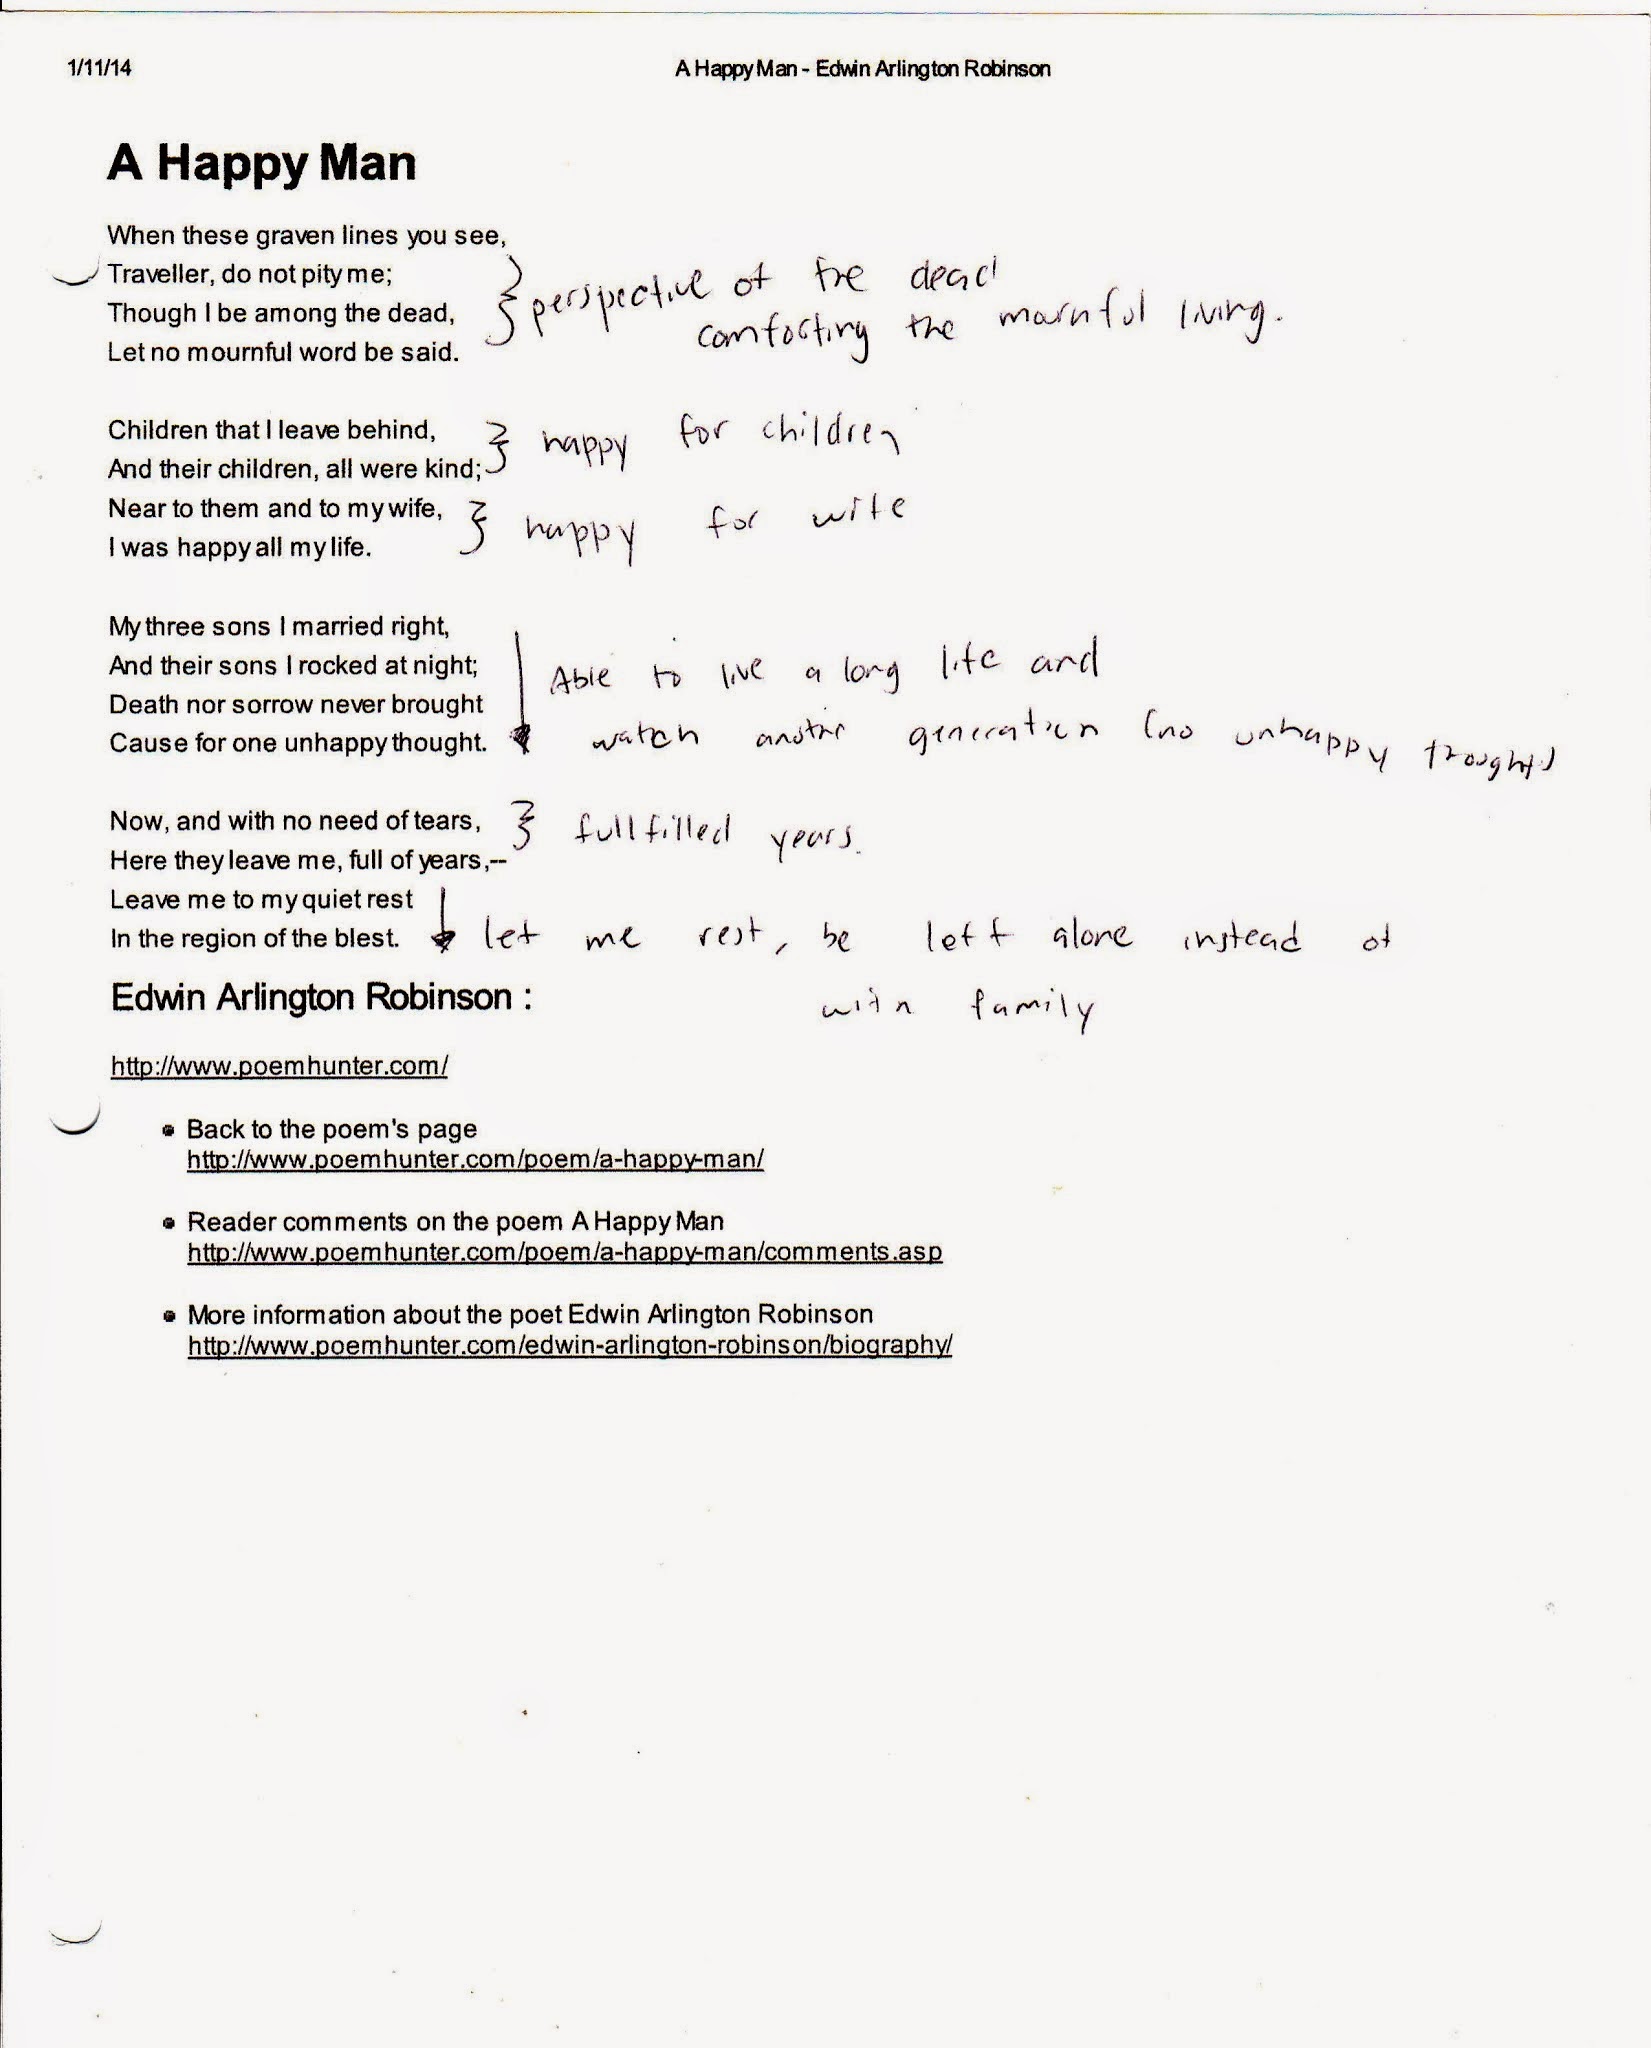 1/11/14 A Happy Man - Edwin Arlington Robinson
A Happy Man
When these graven lines you see,
Traveller, do not pity me;
Though I be among the dead,
Let no mournful word be said.
perspective of the dead
comforting the mournful living.
Children that I leave behind,
And their children, all were kind;
happy for children
Near to them and to my wife,
I was happy all my life.
happy for wife
My three sons I married right,
And their sons I rocked at night;
Death nor sorrow never brought
Cause for one unhappy thought.
Able to live a long life and
watch another generation (no unhappy thoughts)
Now, and with no need of tears,
Here they leave me, full of years,--
fullfilled years.
Leave me to my quiet rest
In the region of the blest.
let me rest, be left alone instead of
with family
Edwin Arlington Robinson :
http://www.poemhunter.com/
Back to the poem's page
http://www.poemhunter.com/poem/a-happy-man/
Reader comments on the poem A Happy Man
http://www.poemhunter.com/poem/a-happy-man/comments.asp
More information about the poet Edwin Arlington Robinson
http://www.poemhunter.com/edwin-arlington-robinson/biography/